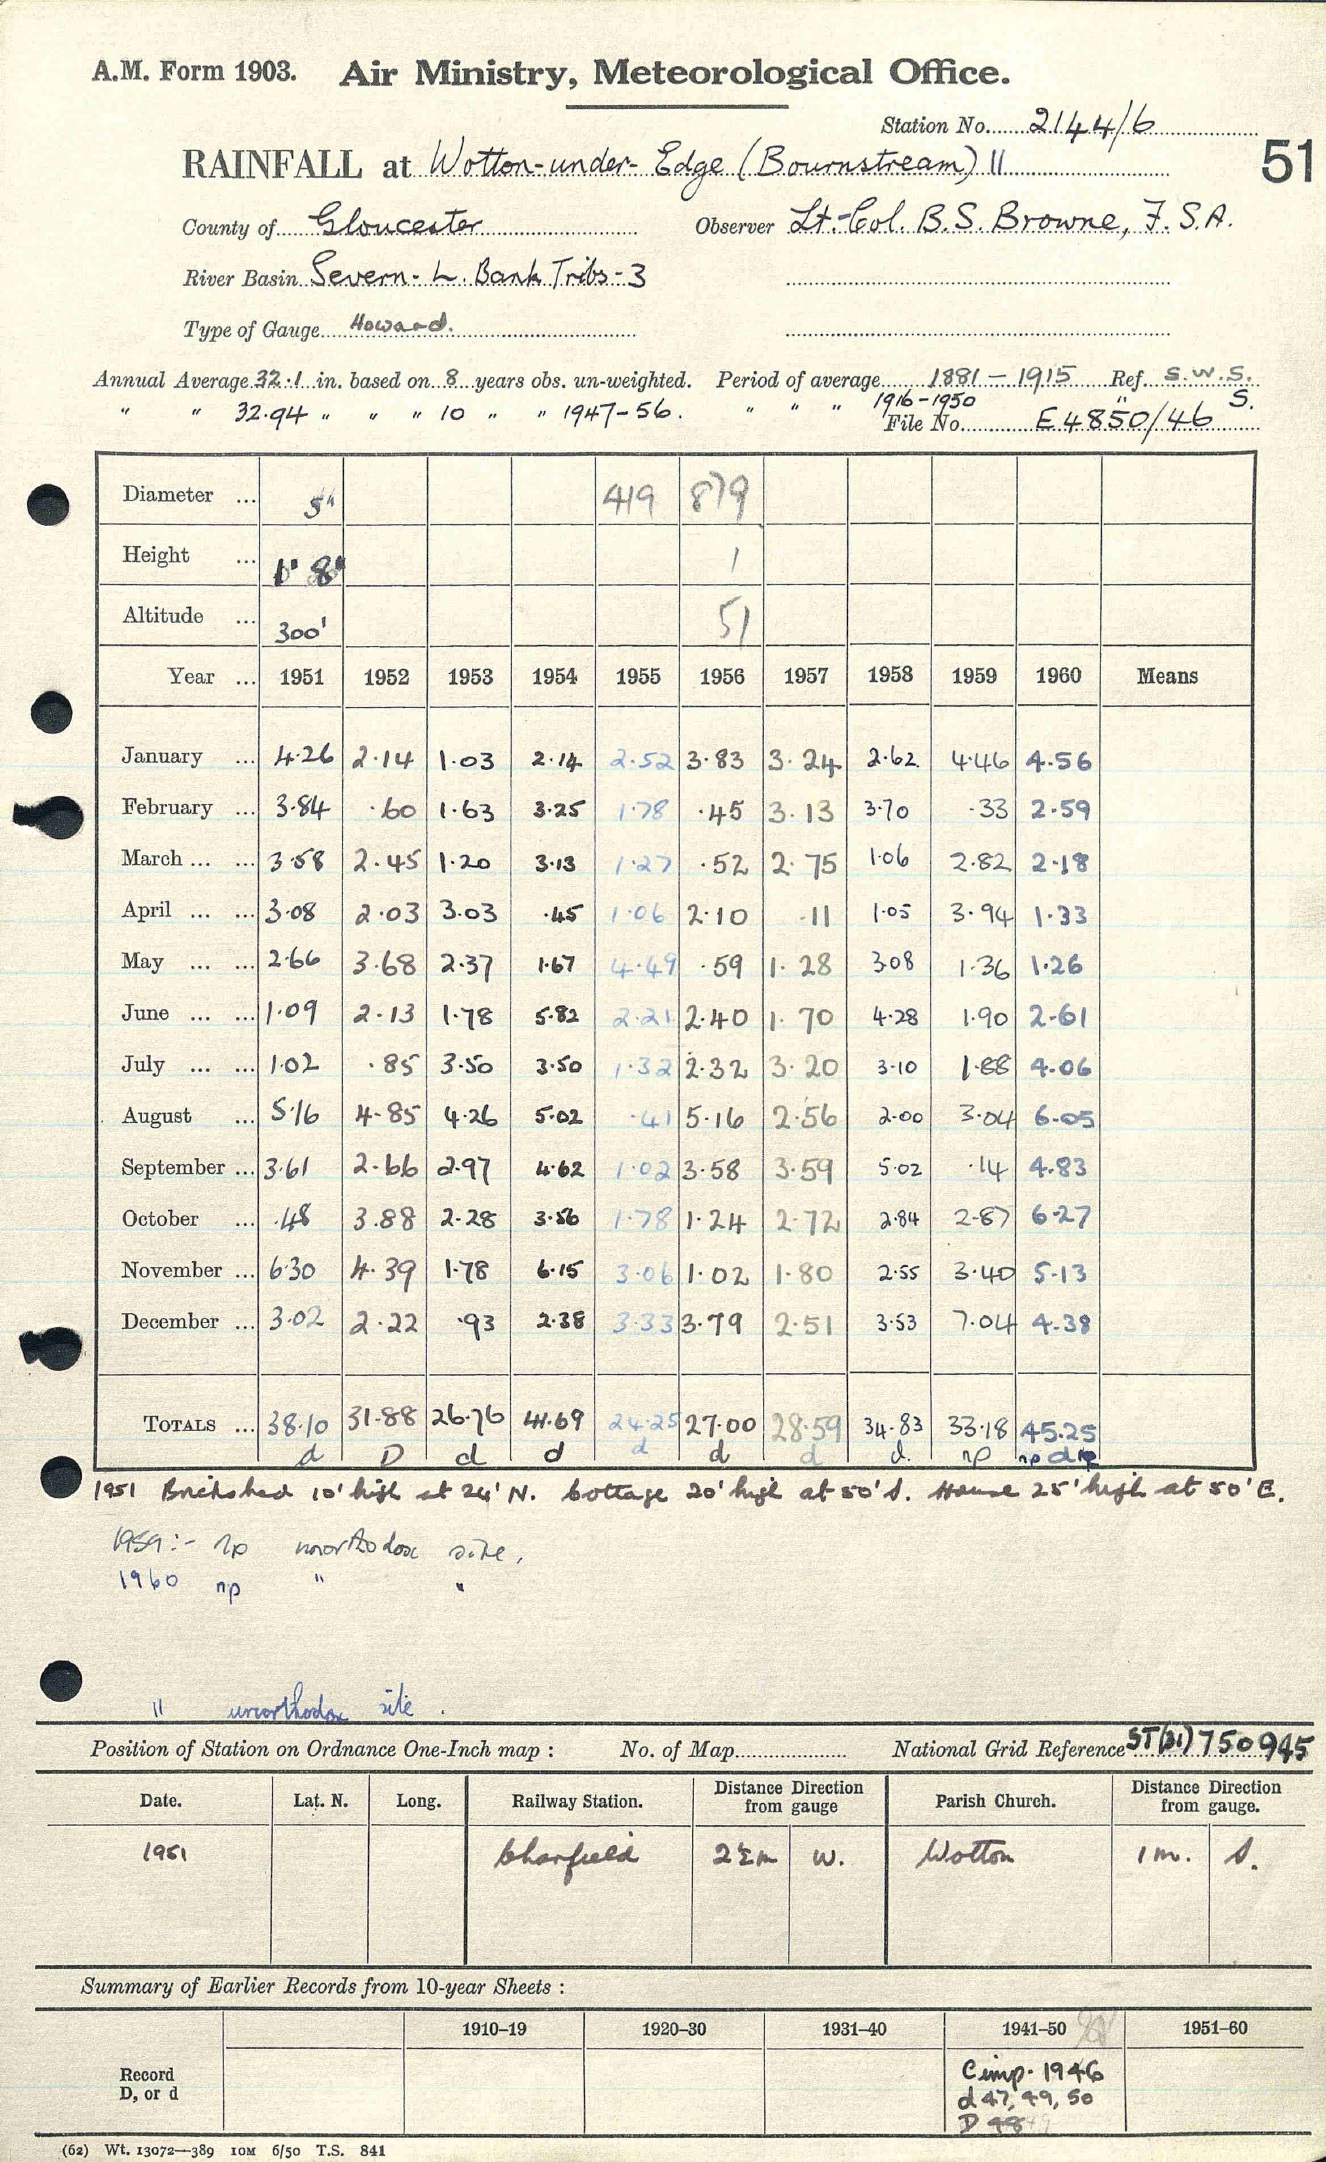 A.M. Form 1903. Air Ministry, Meteorological Office.
Station No. 2144/6
RAINFALL at Wotton-under-Edge (Bournstream) II
51
County of Gloucester Observer Lt.-Col. B.S. Browne, F.S.A.
River Basin Severn - L. Bank Tribs - 3
Type of Gauge Howard.
Annual Average 32.1 in. based on 8 years obs. un-weighted. Period of average 1881 - 1915 Ref. S.W.S.
" " 32.94 " " " 10 " " 1947-56. " " " 1916-1950 " S.
File No. E4850/46
Diameter ... 5" 419 879
Height ... 1' 8" 1
Altitude ... 300' 51
Year ... 1951 1952 1953 1954 1955 1956 1957 1958 1959 1960 Means
January ... 4.26 2.14 1.03 2.14 2.52 3.83 3.24 2.62 4.46 4.56
February ... 3.84 .60 1.63 3.25 1.78 .45 3.13 3.70 .33 2.59
March ... ... 3.58 2.45 1.20 3.13 1.27 .52 2.75 1.06 2.82 2.18
April ... ... 3.08 2.03 3.03 .45 1.06 2.10 .11 1.05 3.94 1.33
May ... ... 2.66 3.68 2.37 1.67 4.49 .59 1.28 3.08 1.36 1.26
June ... ... 1.09 2.13 1.78 5.82 2.21 2.40 1.70 4.28 1.90 2.61
July ... ... 1.02 .85 3.50 3.50 1.32 2.32 3.20 3.10 1.88 4.06
August ... 5.16 4.85 4.26 5.02 .41 5.16 2.56 2.00 3.04 6.05
September ... 3.61 2.66 2.97 4.62 1.02 3.58 3.59 5.02 .14 4.83
October ... .48 3.88 2.28 3.56 1.78 1.24 2.72 2.84 2.87 6.27
November ... 6.30 4.39 1.78 6.15 3.06 1.02 1.80 2.55 3.40 5.13
December ... 3.02 2.22 .93 2.38 3.33 3.79 2.51 3.53 7.04 4.38
TOTALS ... 38.10 31.88 26.76 41.69 24.25 27.00 28.59 34.83 33.18 45.25
d D d d d d d d. np np
1951 Brickshed 10' high at 24' N. Cottage 20' high at 50' S. House 25' high at 50' E.
1959:- np unorthodox site.
1960 np " "
" unorthodox site.
Position of Station on Ordnance One-Inch map : No. of Map National Grid Reference ST(31) 750945
Date. Lat. N. Long. Railway Station. Distance from gauge Direction Parish Church. Distance from gauge. Direction
1951 Charfield 2½m W. Wotton 1 m. S.
Summary of Earlier Records from 10-year Sheets :
1910–19 1920–30 1931–40 1941–50 1951–60
Record D, or d
Cimp. 1946
d 47, 49, 50
D 48
(62) Wt. 13072—389 10M 6/50 T.S. 841